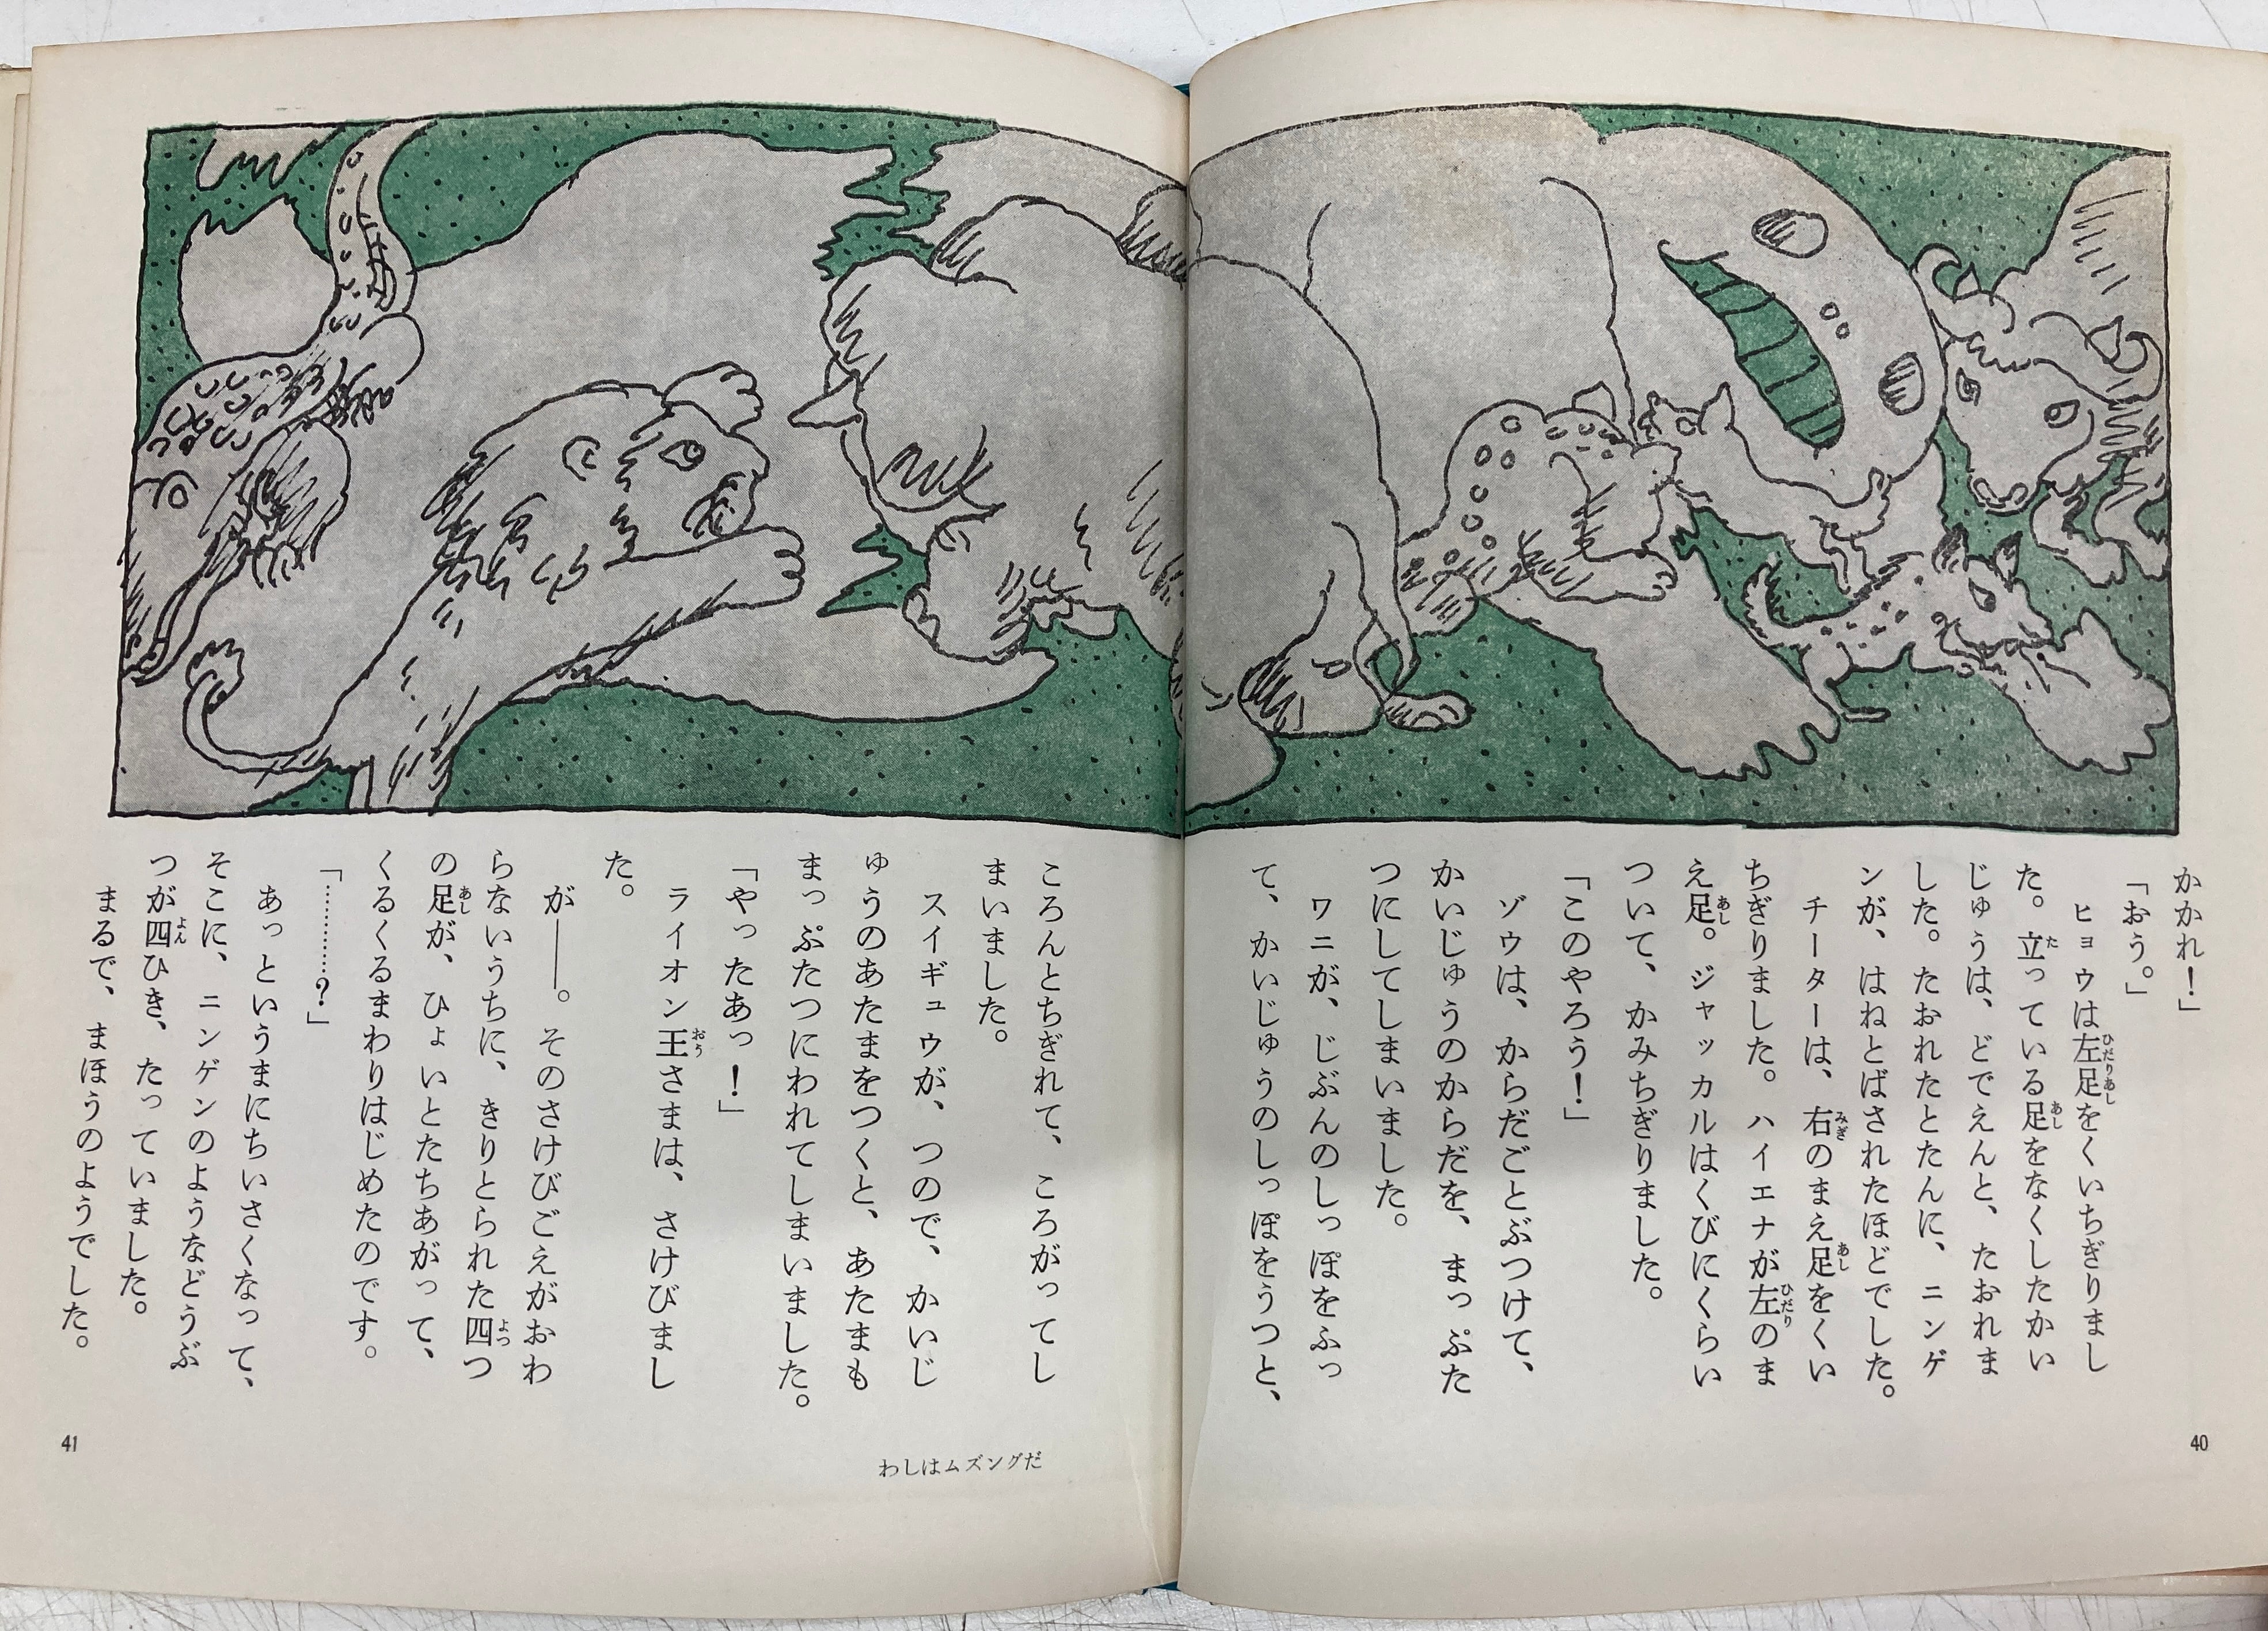 かかれ！」
「おう。」
ヒョウは左足をくいちぎりまし
た。立っている足をなくしたかい
じゅうは、どでえんと、たおれま
した。たおれたとたんに、ニンゲ
ンが、はねとばされたほどでした。
チーターは、右のまえ足をくい
ちぎりました。ハイエナが左のま
え足。ジャッカルはくびにくらい
ついて、かみちぎりました。
「このやろう！」
ゾウは、からだごとぶつけて、
かいじゅうのからだを、まっぷた
つにしてしまいました。
ワニが、じぶんのしっぽをふっ
て、かいじゅうのしっぽをうつと、
40
ころんとちぎれて、ころがってし
まいました。
スイギュウが、つので、かいじ
ゅうのあたまをつくと、あたまも
まっぷたつにわれてしまいました。
「やったあっ！」
ライオン王さまは、さけびまし
た。
が――。そのさけびごえがおわ
らないうちに、きりとられた四つ
の足が、ひょいとたちあがって、
くるくるまわりはじめたのです。
「…………？」
あっというまにちいさくなって、
そこに、ニンゲンのようなどうぶ
つが四ひき、たっていました。
まるで、まほうのようでした。
わしはムズングだ
41